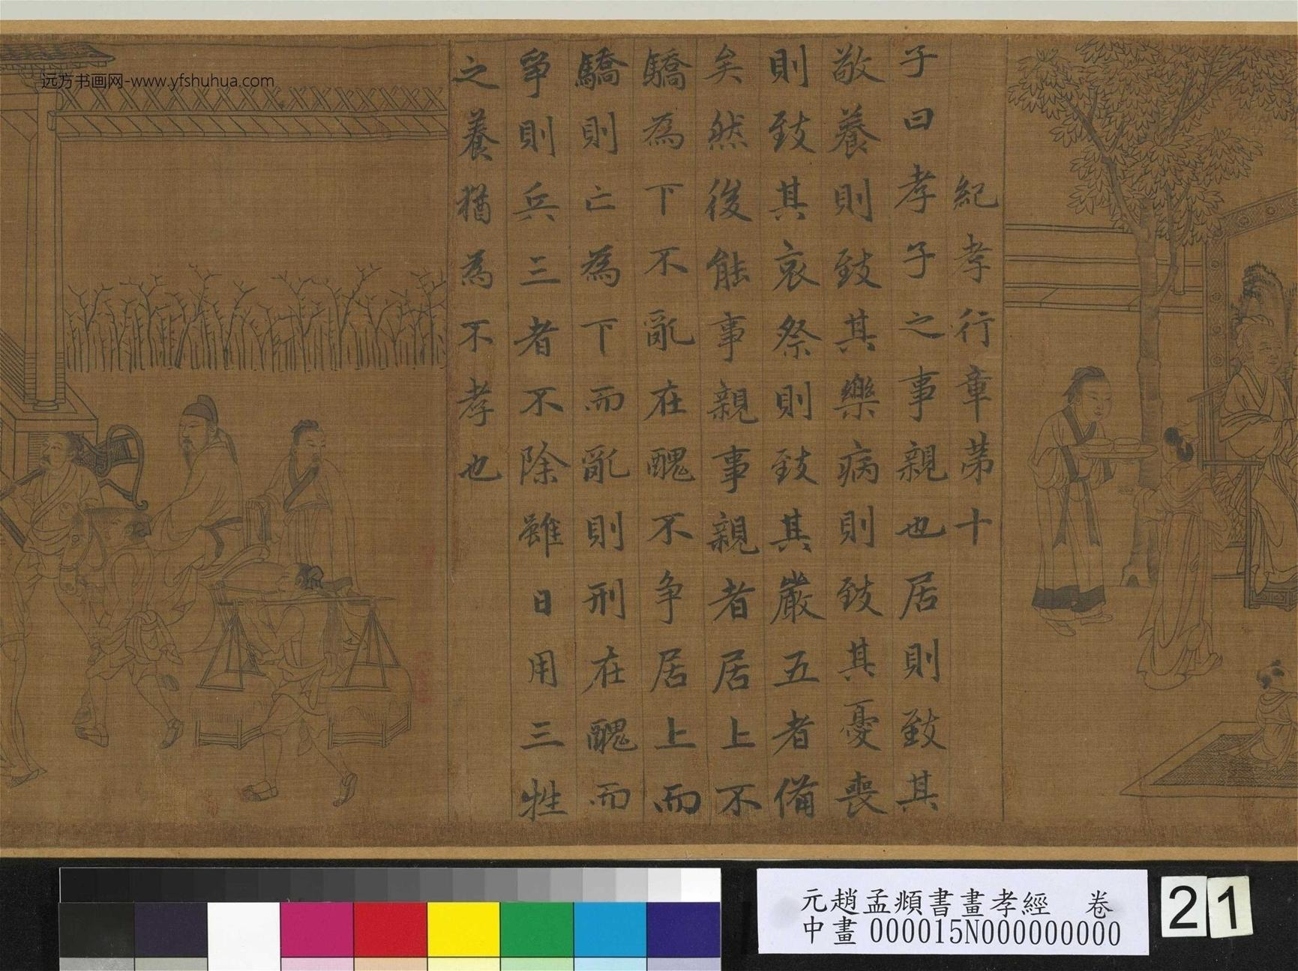 紀孝行章苐十
子曰孝子之事親也居則致其
敬養則致其樂病則致其憂喪
則致其哀祭則致其嚴五者備
矣然後能事親事親者居上不
驕為下不亂在醜不爭居上而
驕則亡為下而亂則刑在醜而
爭則兵三者不除雖日用三牲
之養猶為不孝也
远方书画网-www.yfshuhua.com
元趙孟頫書畫孝經 卷
中畫 000015N000000000
21